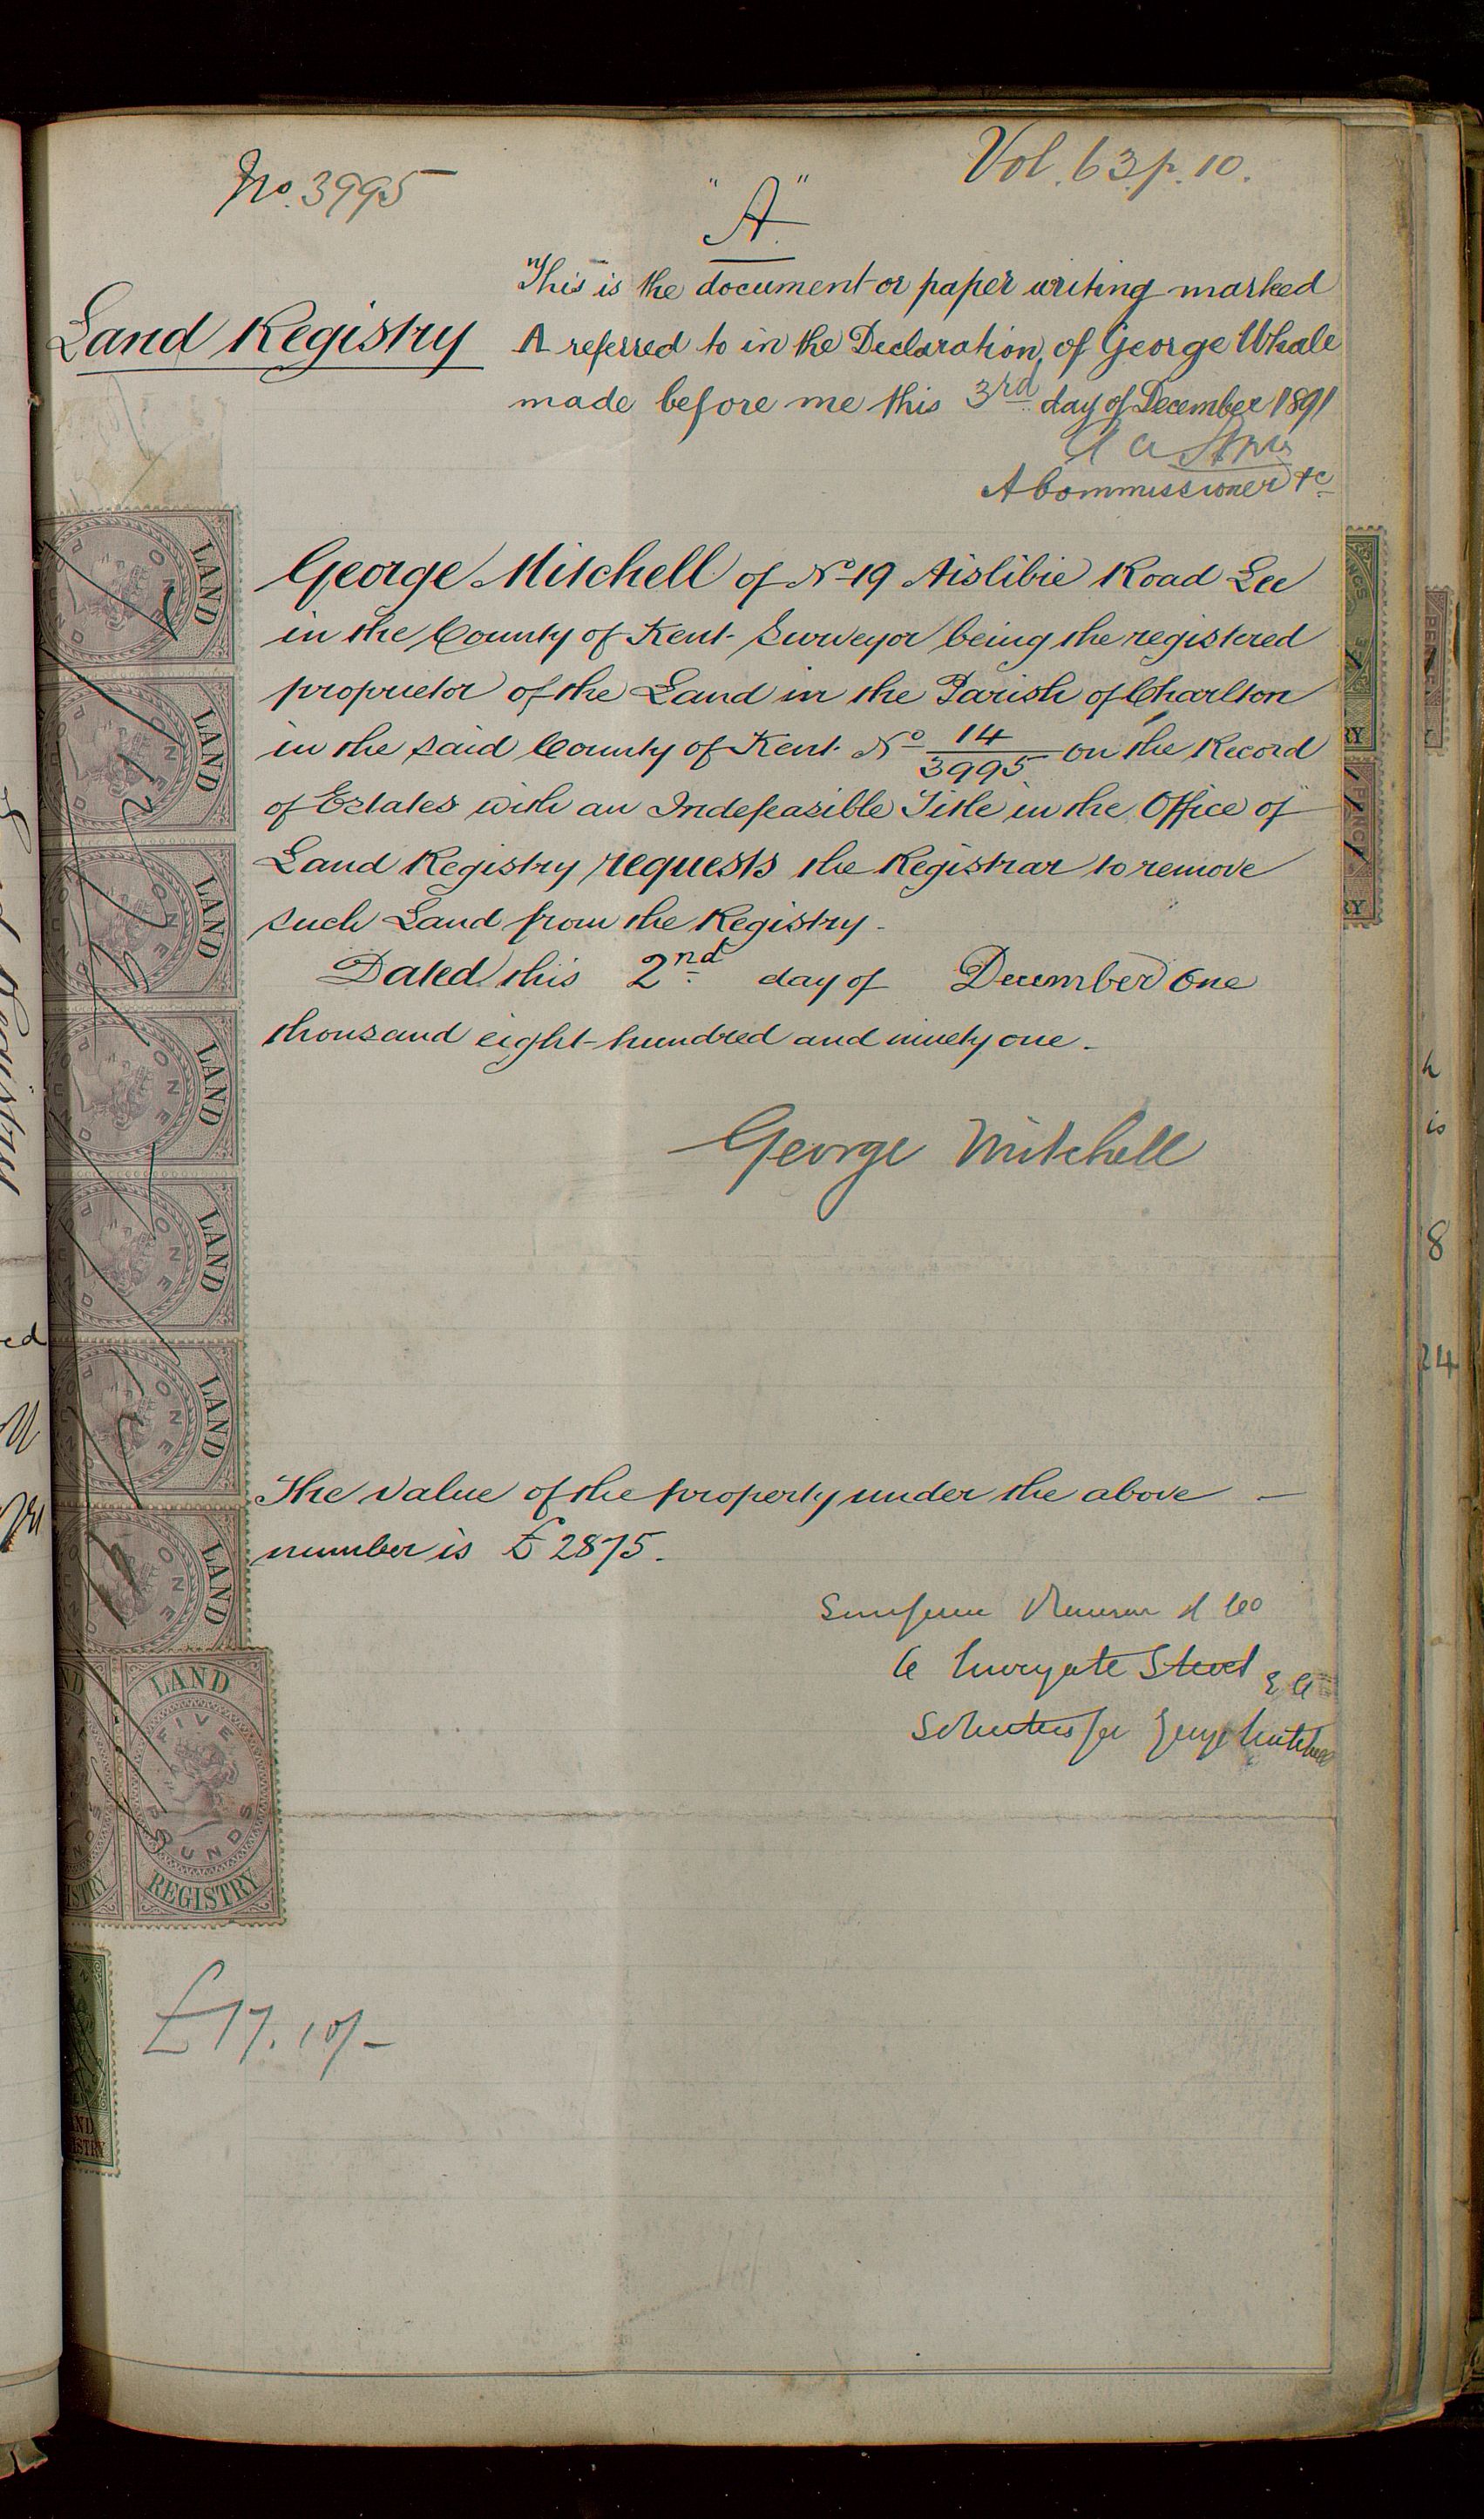 No. 3995
Vol. 63 p. 10.
"A"
Land Registry
"This is the document or paper writing marked
A referred to in the Declaration of George Whale
made before me this 3rd day of December 1891
A Commissioner &c
George Mitchell of No 19 Aislibie Road Lee
in the County of Kent Surveyor being the registered
proprietor of the Land in the Parish of Charlton
in the said County of Kent No 14/3995 on the Record
of Estates with an Indefeasible Title in the Office of
Land Registry requests the Registrar to remove
such Land from the Registry.
Dated this 2nd day of December One
thousand eight hundred and ninety one.
George Mitchell
The value of the property under the above
number is £2875.
6 Moorgate Street E C
Solicitors for George Mitchell
£17.10/-
LAND
LAND
LAND
LAND
LAND
LAND
LAND
LAND
FIVE
POUNDS
REGISTRY